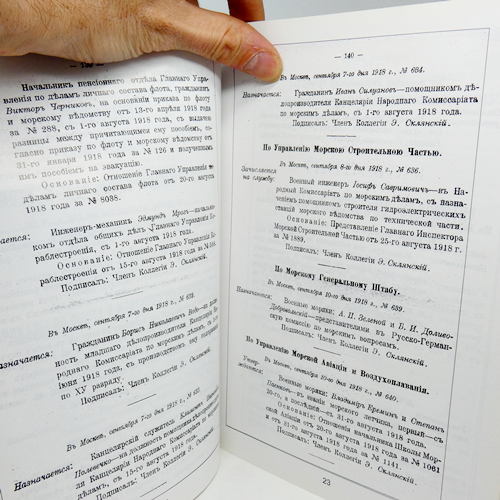 — 139 —
Начальник пенсіоннаго отдѣла Главнаго Упра-
вленія по дѣламъ личнаго состава флота, гражданинъ
Викторъ Черниковъ, на основаніи приказа по флоту
и морскому вѣдомству отъ 13-го апрѣля 1918 года
за № 288, съ 1-го августа 1918 года, съ выдачею
разницы между причитающимся ему пособіемъ, со-
гласно приказу по флоту и морскому вѣдомству отъ
31-го января 1918 года за № 126 и полученнымъ
пособіемъ на эвакуацію.
Основаніе: Отношеніе Главнаго Управленія по
дѣламъ личнаго состава флота отъ 20-го августа
1918 года за № 8038.
Инженеръ-механикъ
отдѣла общихъ дѣлъ Главнаго Управленія Ко-
раблестроенія, съ 1-го августа 1918 года.
Основаніе: Отношеніе Главнаго Управленія Ко-
раблестроенія отъ 15-го августа 1918 года за №
Подписалъ: Членъ Коллегіи Э. Склянскій.
Въ Москвѣ, сентября 7-го дня 1918 г., № 632.
Назначается: Гражданинъ Борисъ Николаевичъ на долж-
ность младшаго дѣлопроизводителя Канцеляріи На-
роднаго Комиссаріата по морскимъ дѣламъ, съ
Іюня 1918 года, съ производствомъ ему
по XV разряду.
Подписалъ: Членъ Коллегіи Э. Склянскій.
Въ Москвѣ, сентября 7-го дня 1918 г., №
Назначается: Канцелярскій служитель
на должность
Канцеляріи Народнаго Комиссаріата по морскимъ
дѣламъ, съ 15-го августа 1918 года.
Подписалъ: Членъ Коллегіи Э. Склянскій.
— 140 —
Въ Москвѣ, сентября 7-го дня 1918 г., № 634.
Назначается: Гражданинъ Иванъ Силуановъ—помощникомъ дѣ-
лопроизводителя Канцеляріи Народнаго Комиссаріата
по морскимъ дѣламъ, съ 1-го августа 1918 года.
Подписалъ: Членъ Коллегіи Э. Склянскій.
По Управленію Морскою Строительною Частью.
Въ Москвѣ, сентября 8-го дня 1918 г., № 636.
Зачисляется на службу: Военный инженеръ Іосифъ Савримовичъ—въ На-
родный Комиссаріатъ по морскимъ дѣламъ, съ назначе-
ніемъ помощникомъ строителя гидроэлектрическихъ
станцій морского вѣдомства по технической части.
Основаніе: Представленіе Главнаго Инспектора
Морской Строительной Частью отъ 25-го августа 1918 г.
за № 1889.
Подписалъ: Членъ Коллегіи Э. Склянскій.
По Морскому Генеральному Штабу.
Въ Москвѣ, сентября 10-го дня 1918 г., № 639.
Назначаются: Военные моряки: А. П. Зеленой и Б. И. Доливо-
Добровольскій—представителями въ Русско-Герман-
скую комисію по морскимъ вопросамъ.
Подписалъ: Членъ Коллегіи Э. Склянскій.
По Управленію Морской Авіаціи и Воздухоплаванія.
Въ Москвѣ, сентября 10-го дня 1918 г., № 640.
Утверждаются: Военные моряки: Владиміръ Еремичъ и Степанъ
въ званіи морского летчика, первый—съ
августа, а послѣдній—съ 31-го августа 1918 года.
Основаніе: Отношенія начальника Школы Мор-
ской Авіаціи отъ 20-го августа 1918 года за № 1061
и отъ 31-го августа 1918 года за № 1141.
Подписалъ: Членъ Коллегіи Э. Склянскій.
23